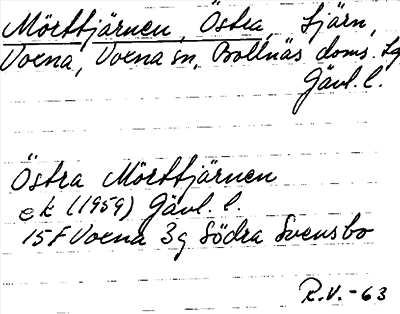 Mörttjärnen, Östra, tjärn,
Voxna, Voxna sn, Bollnäs doms. tg
Gävl. l.
Östra Mörttjärnen
ek (1959) Gävl. l.
15F Voxna 3g Södra Svensbo
R.V. - 63